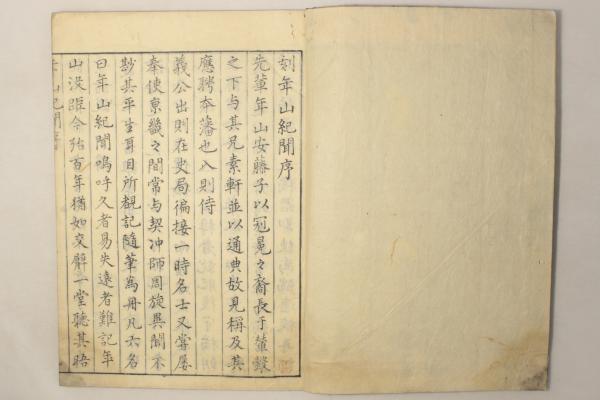 刻年山紀聞序
先輩年山安藤子以冠冕之裔長于輦轂
之下与其兄素軒並以通典故見稱及其
應聘本藩也入則侍
義公出則在史局徧接一時名士又嘗屡
奉使京畿之間常与契冲師周旋異聞不
尠其平生耳目所覩記随筆為冊凡六名
曰年山紀聞嗚呼久者易失遠者難記年
山没距今殆百年猶如交臂一堂聽其晤
年山紀聞序